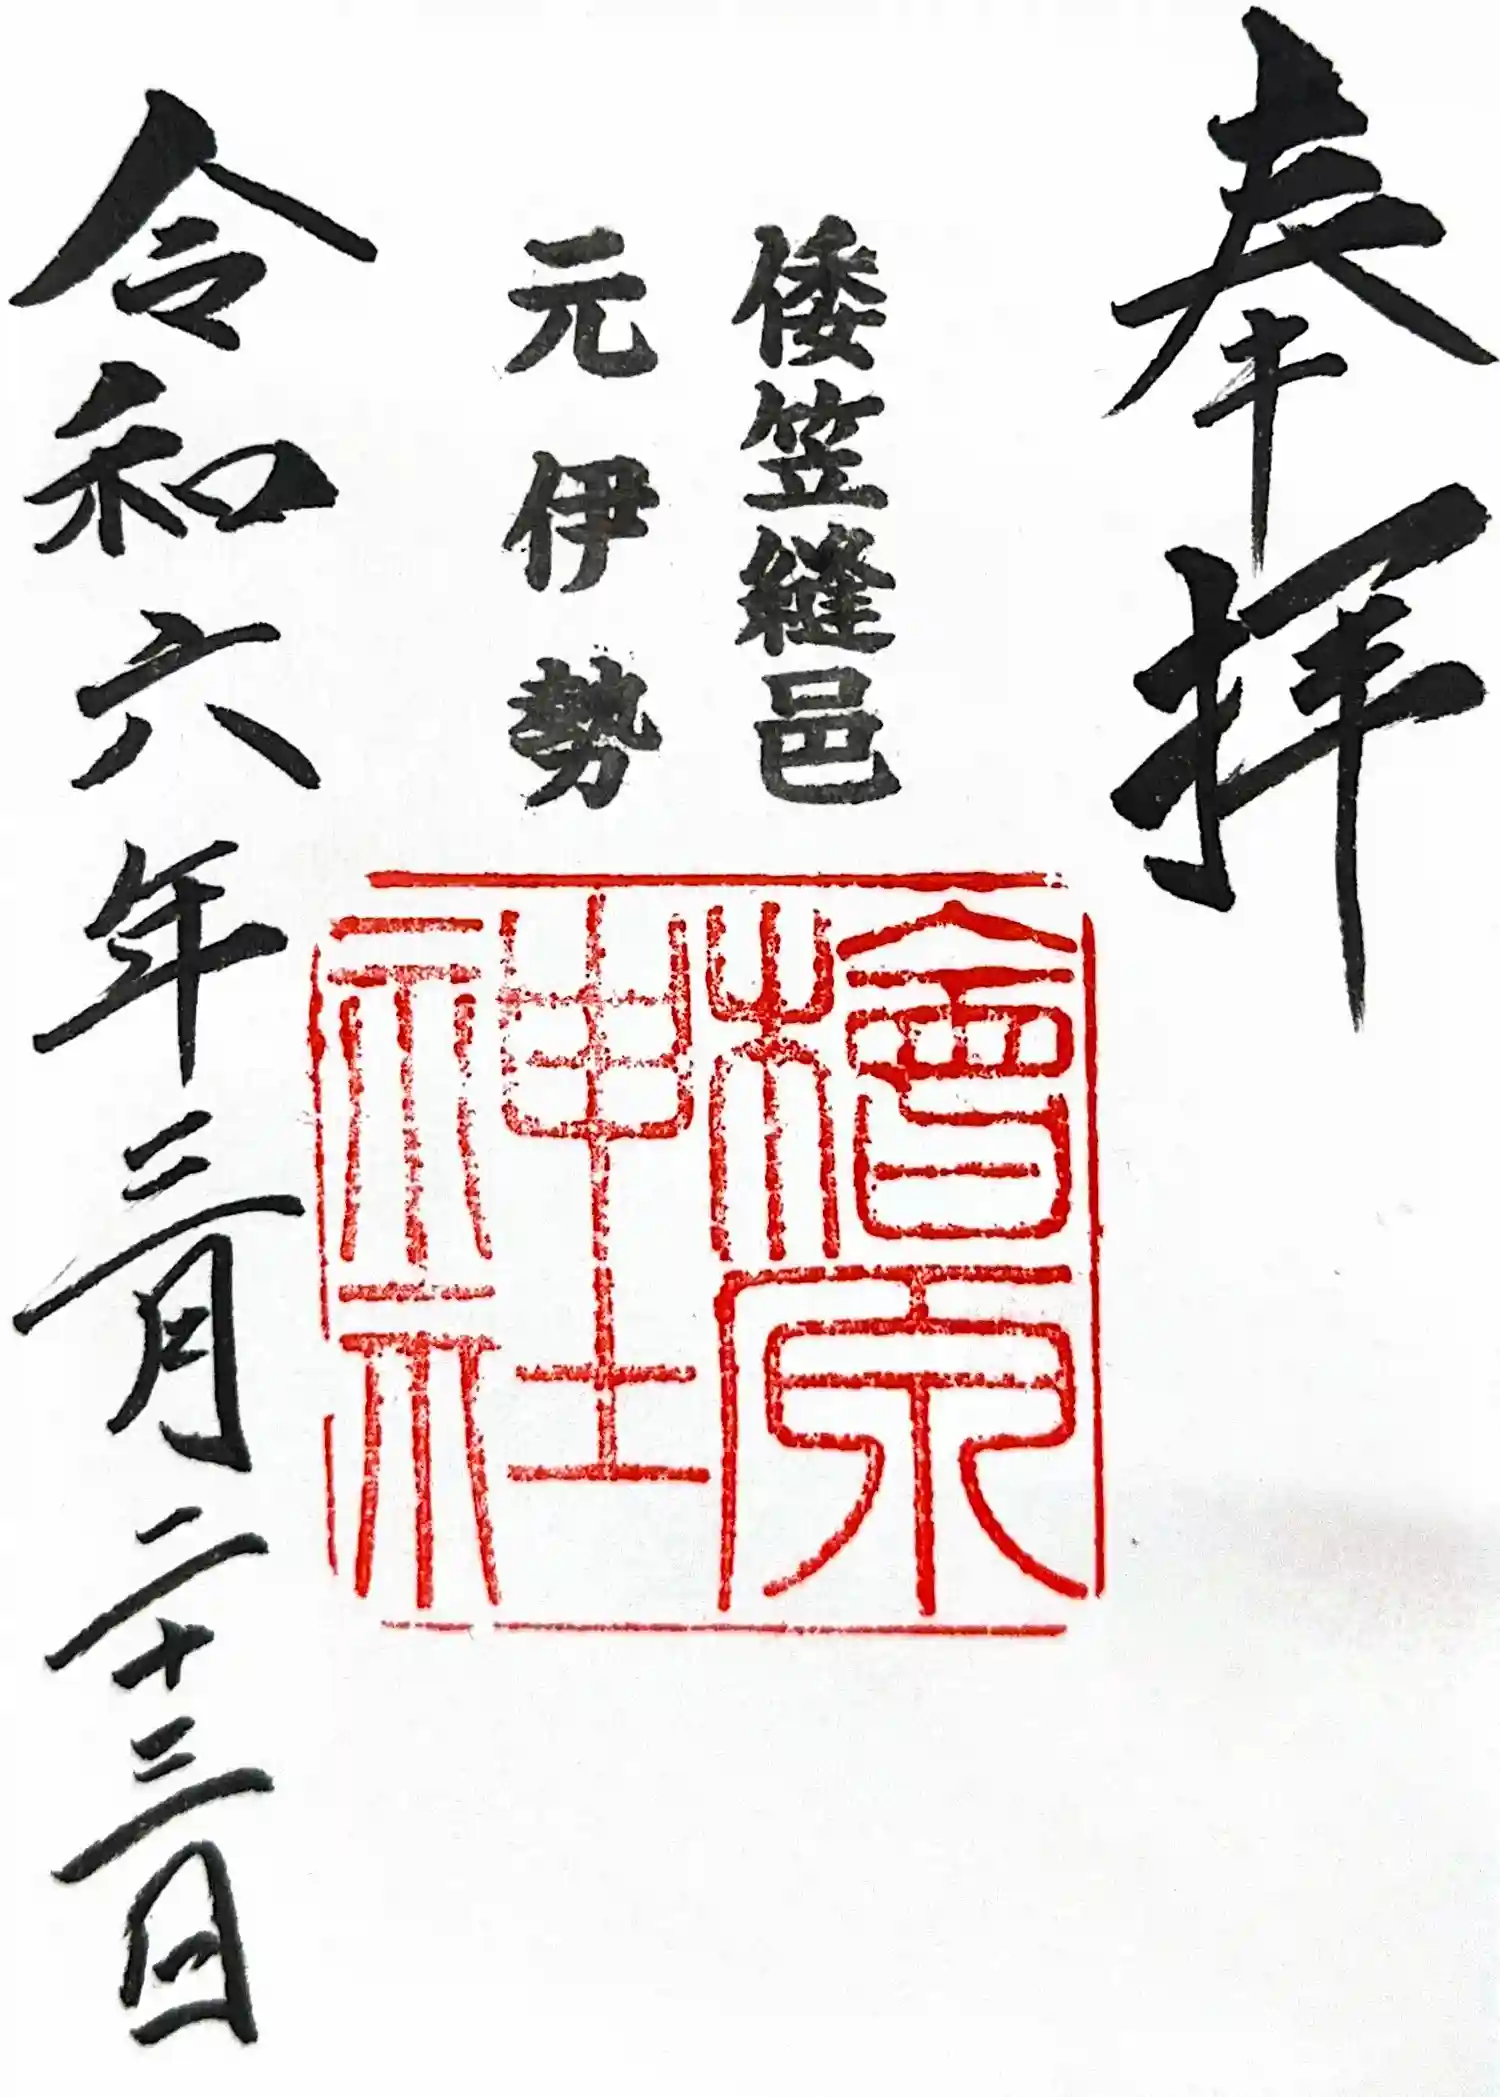 奉拝
倭笠縫邑
元伊勢
檜原
神社
令和六年三月二十三日